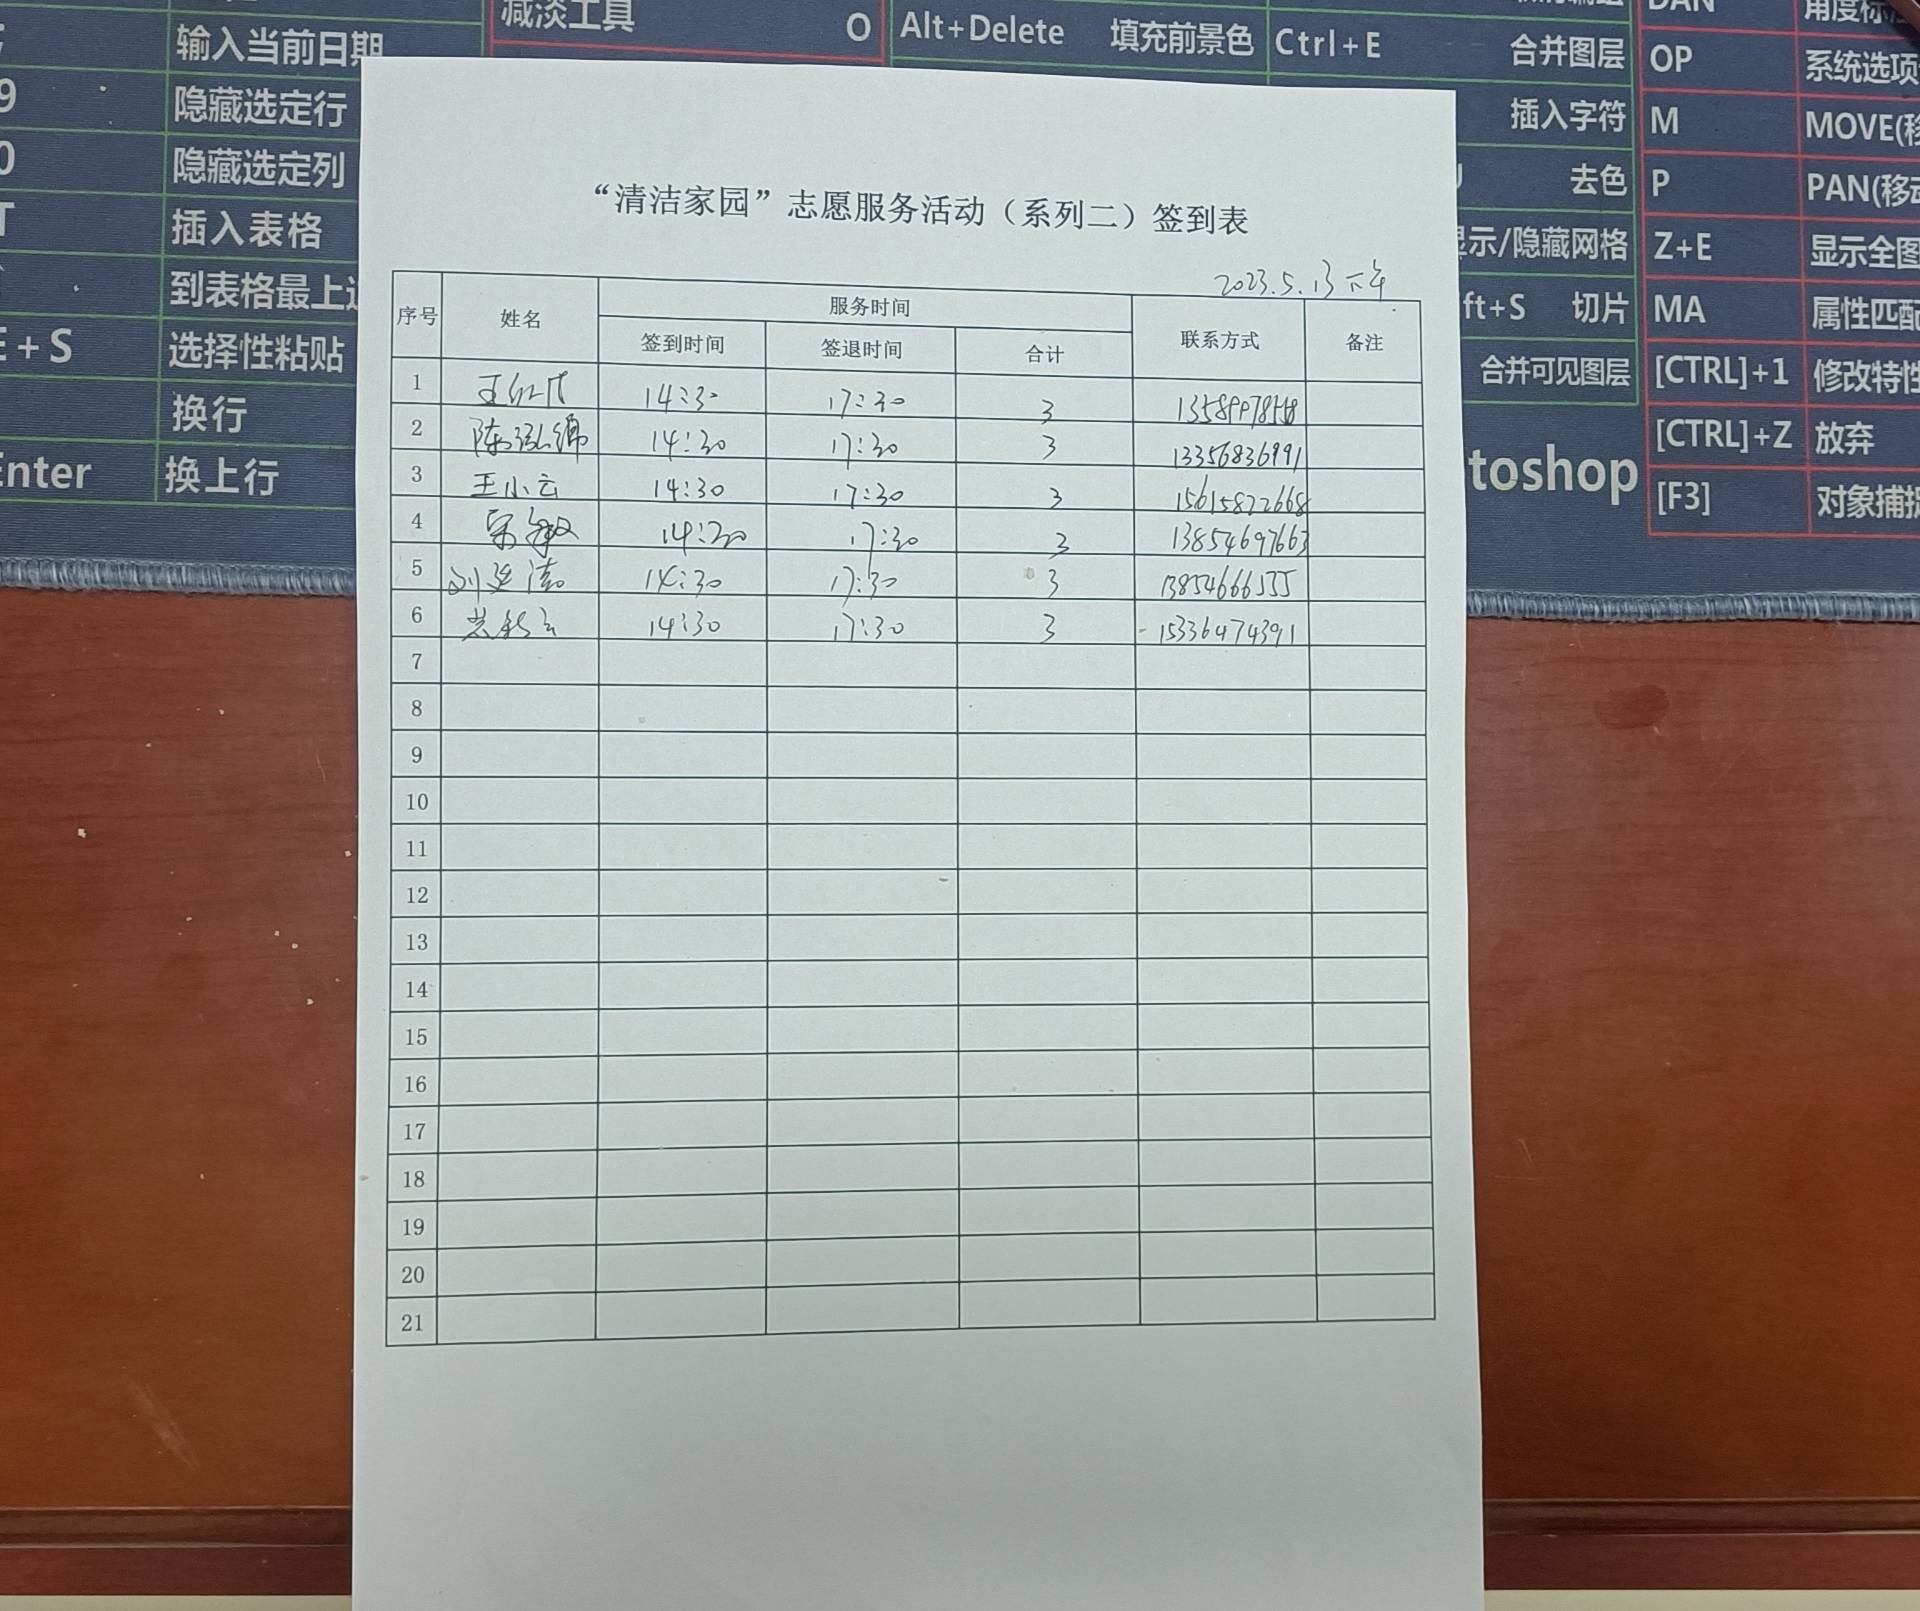 输入当前日期
减淡工具 O
Alt+Delete 填充前景色
Ctrl+E 合并图层
OP 系统选项
9 隐藏选定行
插入字符
M MOVE(移
0 隐藏选定列
去色
P PAN(移动
T 插入表格
显示/隐藏网格
Z+E 显示全图
到表格最上边
ft+S 切片
MA 属性匹配
E+S 选择性粘贴
合并可见图层
[CTRL]+1 修改特性
换行
[CTRL]+Z 放弃
Enter 换上行
toshop
[F3] 对象捕捉
“清洁家园”志愿服务活动（系列二）签到表
2023.5.13下午
序号 姓名 服务时间 联系方式 备注
签到时间 签退时间 合计
1 14:30 17:30 3
2 14:30 17:30 3 13356836991
3 王小云 14:30 17:30 3 15615822668
4 宋敏 14:30 17:30 3 13854697663
5 14:30 17:30 3 13854666555
6 14:30 17:30 3 15336474391
7
8
9
10
11
12
13
14
15
16
17
18
19
20
21